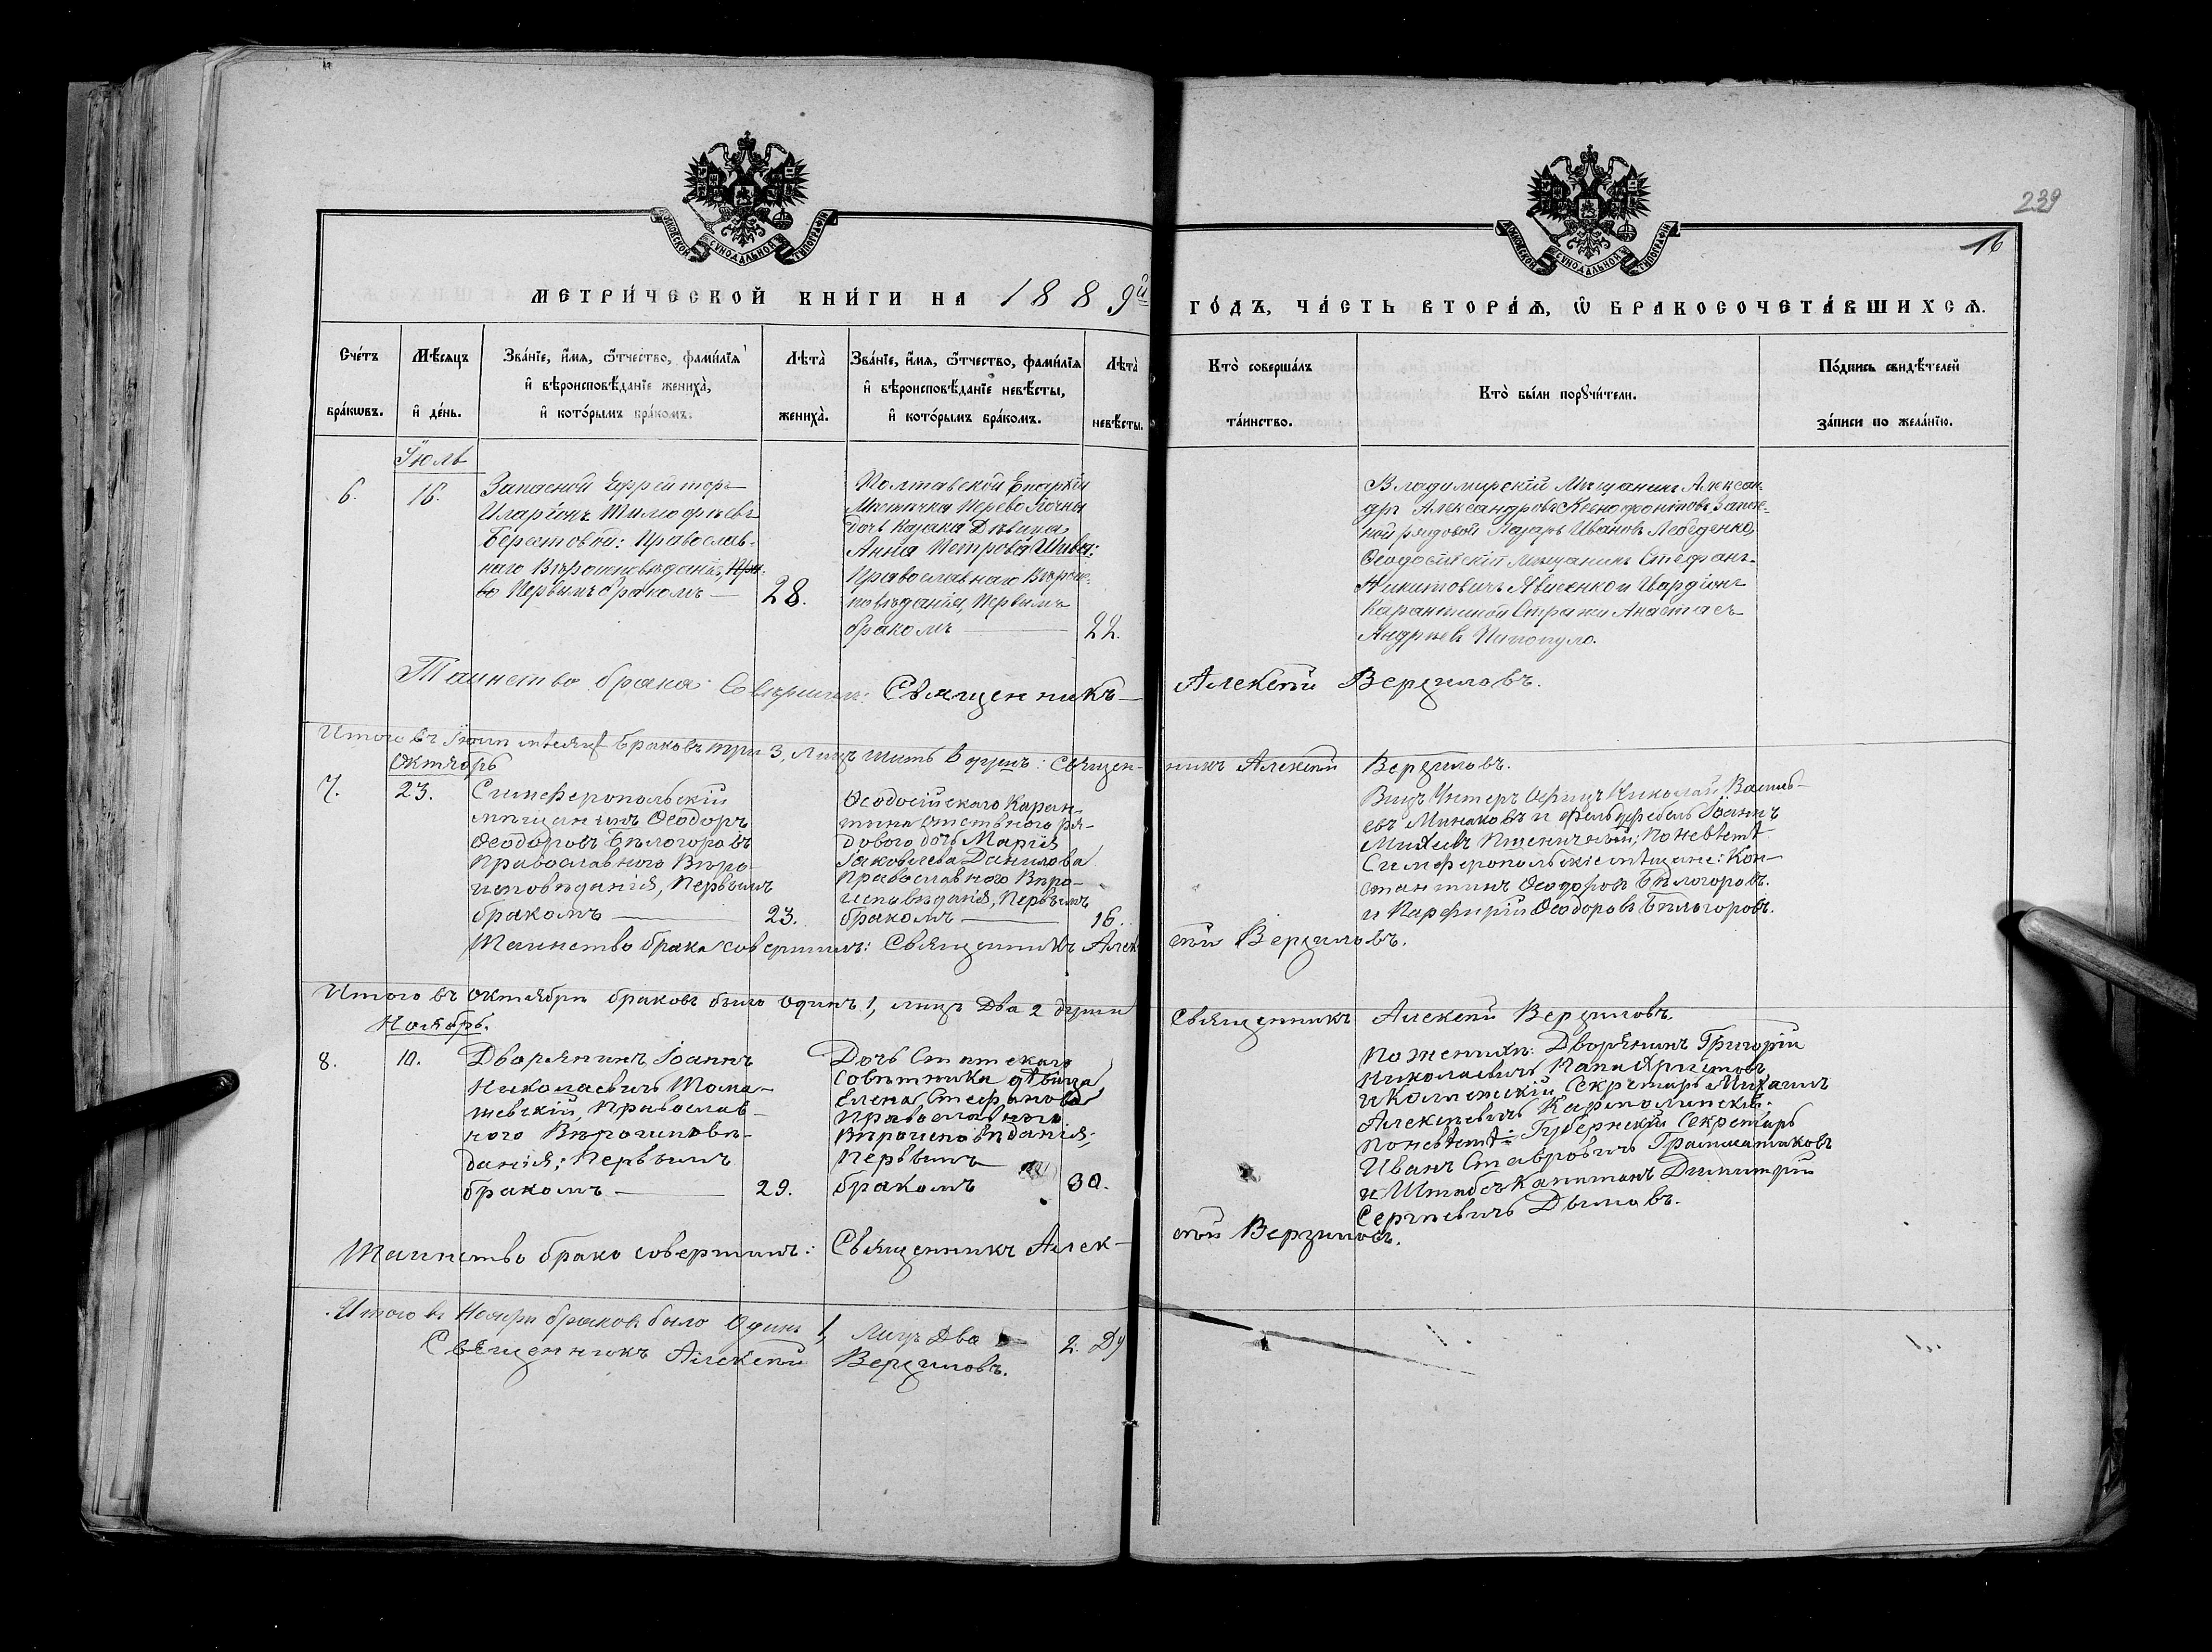 239
16
МОСКОВСКОЙ СѴНОДАЛЬНОЙ ТИПОГРАФІИ
МОСКОВСКОЙ СѴНОДАЛЬНОЙ ТИПОГРАФІИ
МЕТРИ́ЧЕСКОЙ КНИ́ГИ НА 1889й ГО́ДЪ, ЧА́СТЬ ВТОРА́Ѧ, Ѡ҆ БРАКОСОЧЕТА́ВШИХСѦ.
Сче́тъ бра́кѡвъ.
Мѣ́сяцъ и҆ де́нь.
Зва́нїе, и҆́мя, ѻ҆́тчество, фами́лїя и҆ вѣроисповѣ́данїе жениха̀, и҆ кото́рымъ бра́комъ.
Лѣта̀ жениха̀.
Зва́нїе, и҆́мя, ѻ҆́тчество, фами́лїя и҆ вѣроисповѣ́данїе невѣ́сты, и҆ кото́рымъ бра́комъ.
Лѣта̀ невѣ́сты.
Кто̀ соверша́лъ та́инство.
Кто̀ бы́ли порꙋчи́тели.
По́дпись свидѣ́телей за́писи по жела́нїю.
Іюль
6.
16.
Запасной Ефрейторъ
Иларіонъ Тимофѣевъ
Православ-
наго Вѣроисповѣданія,
Первымъ бракомъ —
28.
Полтавской Епархіи
Мѣстечка Переволочны
дочь казака Дѣвица
Анна Петрова Шива:
Православнаго Вѣроис-
повѣданія, Первымъ
бракомъ —
22.
Владимирскій Мѣщанинъ Алексан-
дръ Александровъ Ксенофонтовъ Запас-
ной рядовой Лазарь Ивановъ
Ѳеодосійскій Мѣщанинъ Стефанъ
Никитовичъ Явисенко и Гвардіонъ
Карантинной Стражи Анастасъ
Андреевъ
Таинство брака Совершилъ: Священникъ — Алексѣй Верзиловъ.
Итого въ Іюлѣ мѣсяцѣ Браковъ три 3, Лицъ шесть 6 душъ: Священ-никъ Алексѣй Верзиловъ.
Октябрь
7.
23.
Симферопольскій
мѣщанинъ Ѳеодоръ
Ѳеодоровъ Бѣлогоровъ
Православного Вѣро-
исповѣданія, Первымъ
бракомъ —
23.
Ѳеодосійскаго Каран-
тина отставного ря-
дового дочь Марія
Іаковлева Данилова
Православного Вѣро-
исповѣданія, Первымъ
бракомъ —
16.
Вицъ Унтеръ Офицъ Николай Василь-
евъ Минаковъ и фельдфебель Іоаннъ
Михѣевъ Пшеничный, По невѣстѣ
Симферопольскіе мѣщане: Кон-
стантинъ Ѳеодоровъ Бѣлогоровъ.
и Парфирій Ѳеодоровъ Бѣлогоровъ.
Таинство брака совершилъ: Священникъ Алек-сѣй Верзиловъ.
Итого въ Октябрѣ браковъ было одинъ 1, лицъ Два 2 души Священникъ Алексѣй Верзиловъ.
Ноябрь.
8.
10.
Дворянинъ Іоаннъ
Николаевичъ Тома-
шевскій, Православ-
ного Вѣроисповѣ-
данія; Первымъ
бракомъ —
29.
Дочь Статскаго
Совѣтника дѣвица
Елена Стефанова
Православного
Вѣроисповѣданія;
Первымъ
бракомъ
30.
По женихѣ: Дворянинъ Григорій
Николаевичъ Папахристовъ
и Коллежскій Секретарь Михаилъ
Алексѣевичъ Кармолинскій:
По невѣстѣ: Губернскій Секретарь
Иванъ Ставровичъ Грамматиковъ
и Штабсъ Капитанъ Димитрій
Сергѣевичъ Дымовъ.
Таинство брака совершилъ: Священникъ Алек-сѣй Верзиловъ.
Итого въ Ноябрѣ браковъ было Одинъ 1, Лицъ Два 2. Ду
Священникъ Алексѣй Верзиловъ.